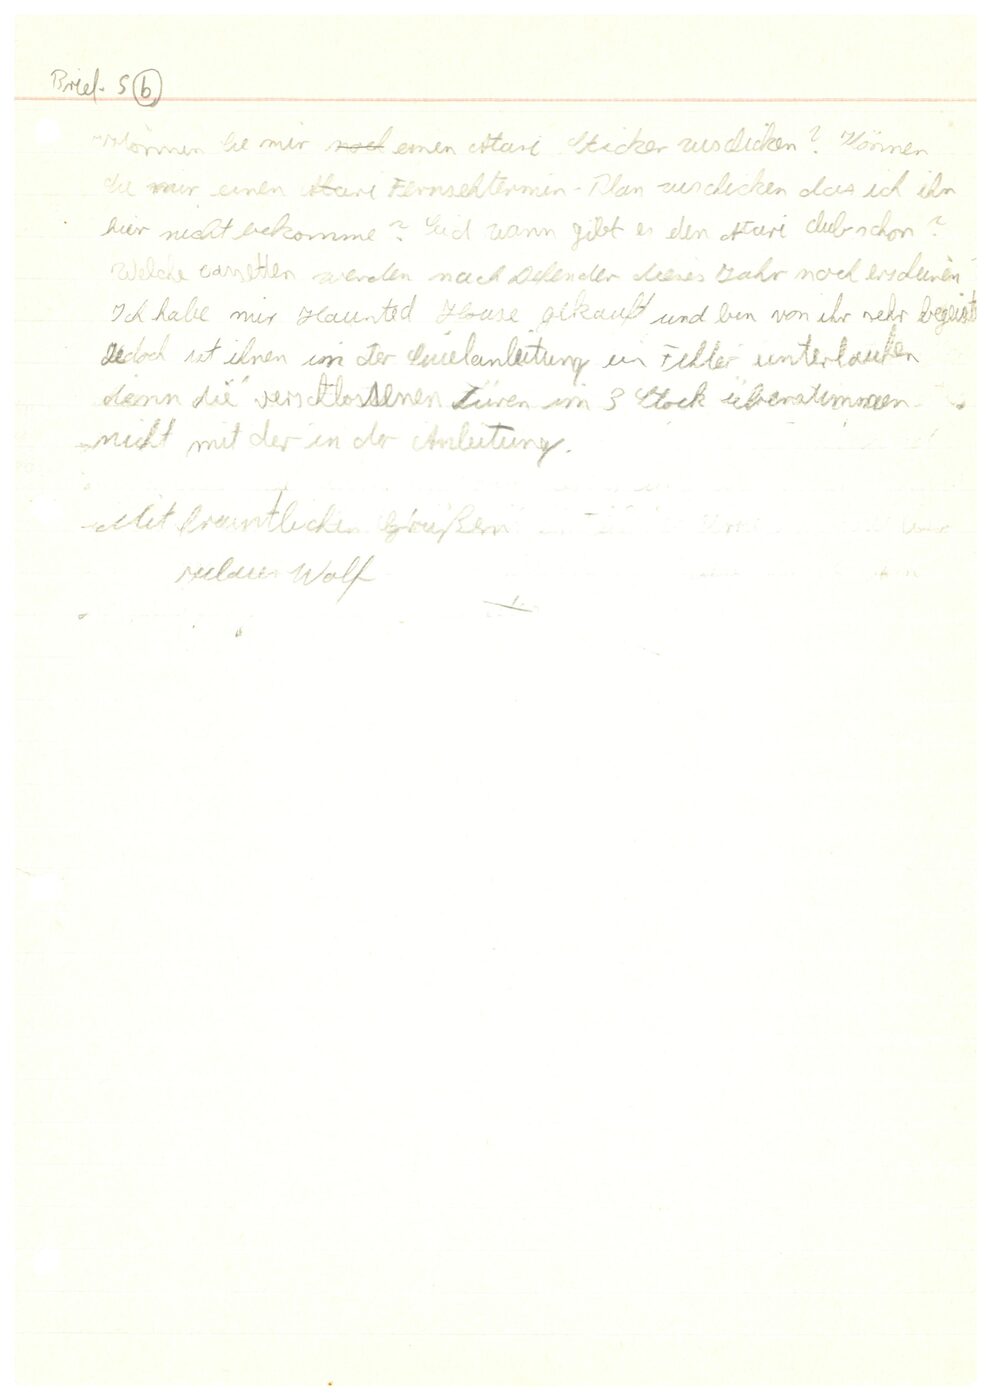 Brief. 5 b
Können Sie mir noch einen Atari Sticker zuschicken? Können
Sie mir einen Atari Fernsehtermin-Plan zuschicken das ich ihn
hier nicht bekomme? Seid wann gibt es den Atari club schon?
Welche Casetten werden nach Defender dieses Jahr noch erscheinen
Ich habe mir Haunted House gekauft und bin von ihr sehr begeistert
Jedoch ist ihnen in der Spielanleitung ein Fehler unterlaufen
denn die verschlossenen Türen im 3 Stock übereinstimmen
nicht mit der in der Anleitung.
Mit freuntlichen Grüßen
Wolf